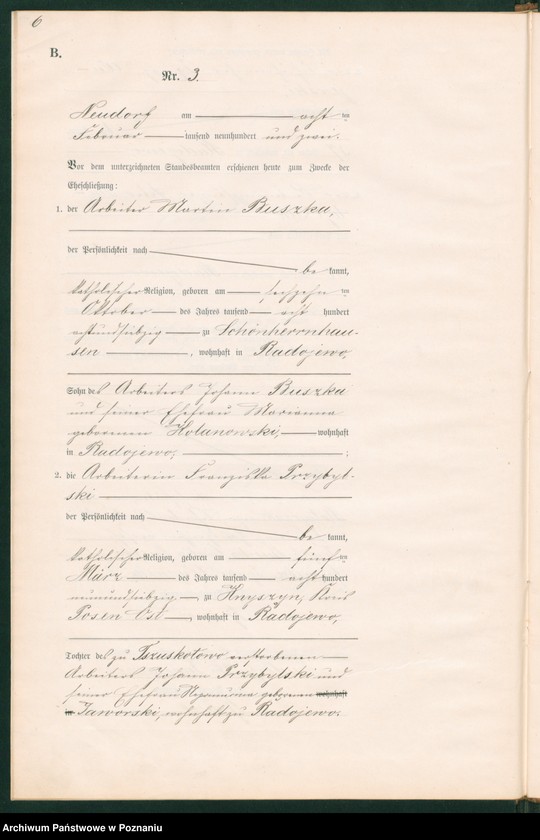 6
B.
Nr. 3.
Neudorf am acht ten
Februar tausend neunhundert und zwei.
Vor dem unterzeichneten Standesbeamten erschienen heute zum Zwecke der
Eheschließung:
1. der Arbeiter Martin Buszka,
der Persönlichkeit nach
be kannt,
katholischer Religion, geboren am sechzehn ten
Oktober des Jahres tausend acht hundert
achtundsiebzig zu Schönherrnhau-
sen, wohnhaft in Radojewo,
Sohn des Arbeiters Johann Buszka
und seiner Ehefrau Marianna
geborenen Holanowski, wohnhaft
in Radojewo, ;
2. die Arbeiterin Franziska Przybyl-
ski
der Persönlichkeit nach
be kannt,
katholischer Religion, geboren am fünf ten
März des Jahres tausend acht hundert
neunundsiebzig, zu Knyszyn, Kreis
Posen Ost, wohnhaft in Radojewo,
Tochter des zu verstorbenen
Arbeiters Johann Przybylski und
seiner Ehefrau geborenen wohnhaft
in Jaworski, wohnhaft zu Radojewo.
Archiwum Państwowe w Poznaniu